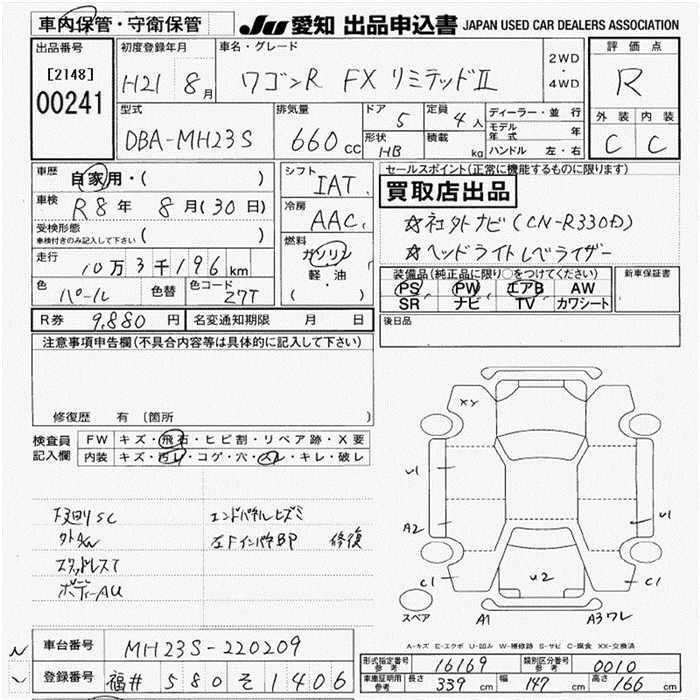 車内保管・守衛保管
JU 愛知 出品申込書 JAPAN USED CAR DEALERS ASSOCIATION
出品番号
[2148]
00241
初度登録年月
H21 8月
車名・グレード
ワゴンR FX リミテッドII
2WD
・
4WD
評価点
R
外装 内装
C C
型式
DBA-MH23S
排気量
660cc
ドア
5
定員
4人
形状
HB
積載
kg
ディーラー・並行
モデル年式 年
ハンドル 左・右
車歴
自家用・( )
車検
R8年 8月(30日)
受検形態
車検付きのみ記入して下さい ( )
走行
10万3千196km
色
パール
色替
色コード
Z7T
シフト
IAT
冷房
AAC
燃料
ガソリン
軽油
( ・ )
セールスポイント(正常に機能するものに限ります)
買取店出品
☆社外ナビ(CN-R330D)
☆ヘッドライトレベライザー
装備品(純正品に限り○をつけてください)
PS PW エアB AW
SR ナビ TV カワシート
新車保証書
R券 9,880円
名変通知期限 月 日
後日品
注意事項申告欄(不具合内容等は具体的に記入して下さい)
修復歴 有 (箇所 )
検査員記入欄
FW キズ・飛石・ヒビ割・リペア跡・X要
内装 キズ・汚レ・コゲ・穴・スレ・キレ・破レ
下廻りSC
外ナビ
スタッドレスT
ボディーAU
エンドパネルヒズミ
左FインパネBP 修復
XY
U1
A2
C1
U2
U1
C1
スペア
A1
A3ワレ
A-キズ E-エクボ U-凹み W-補修跡 S-サビ C-腐食 XX-交換済
車台番号 MH23S-220209
登録番号 福井 580 そ 1406
型式指定番号 参考 16169
類別区分番号 参考 0010
車庫証明用 参考 長さ 339cm 幅 147cm 高さ 166cm